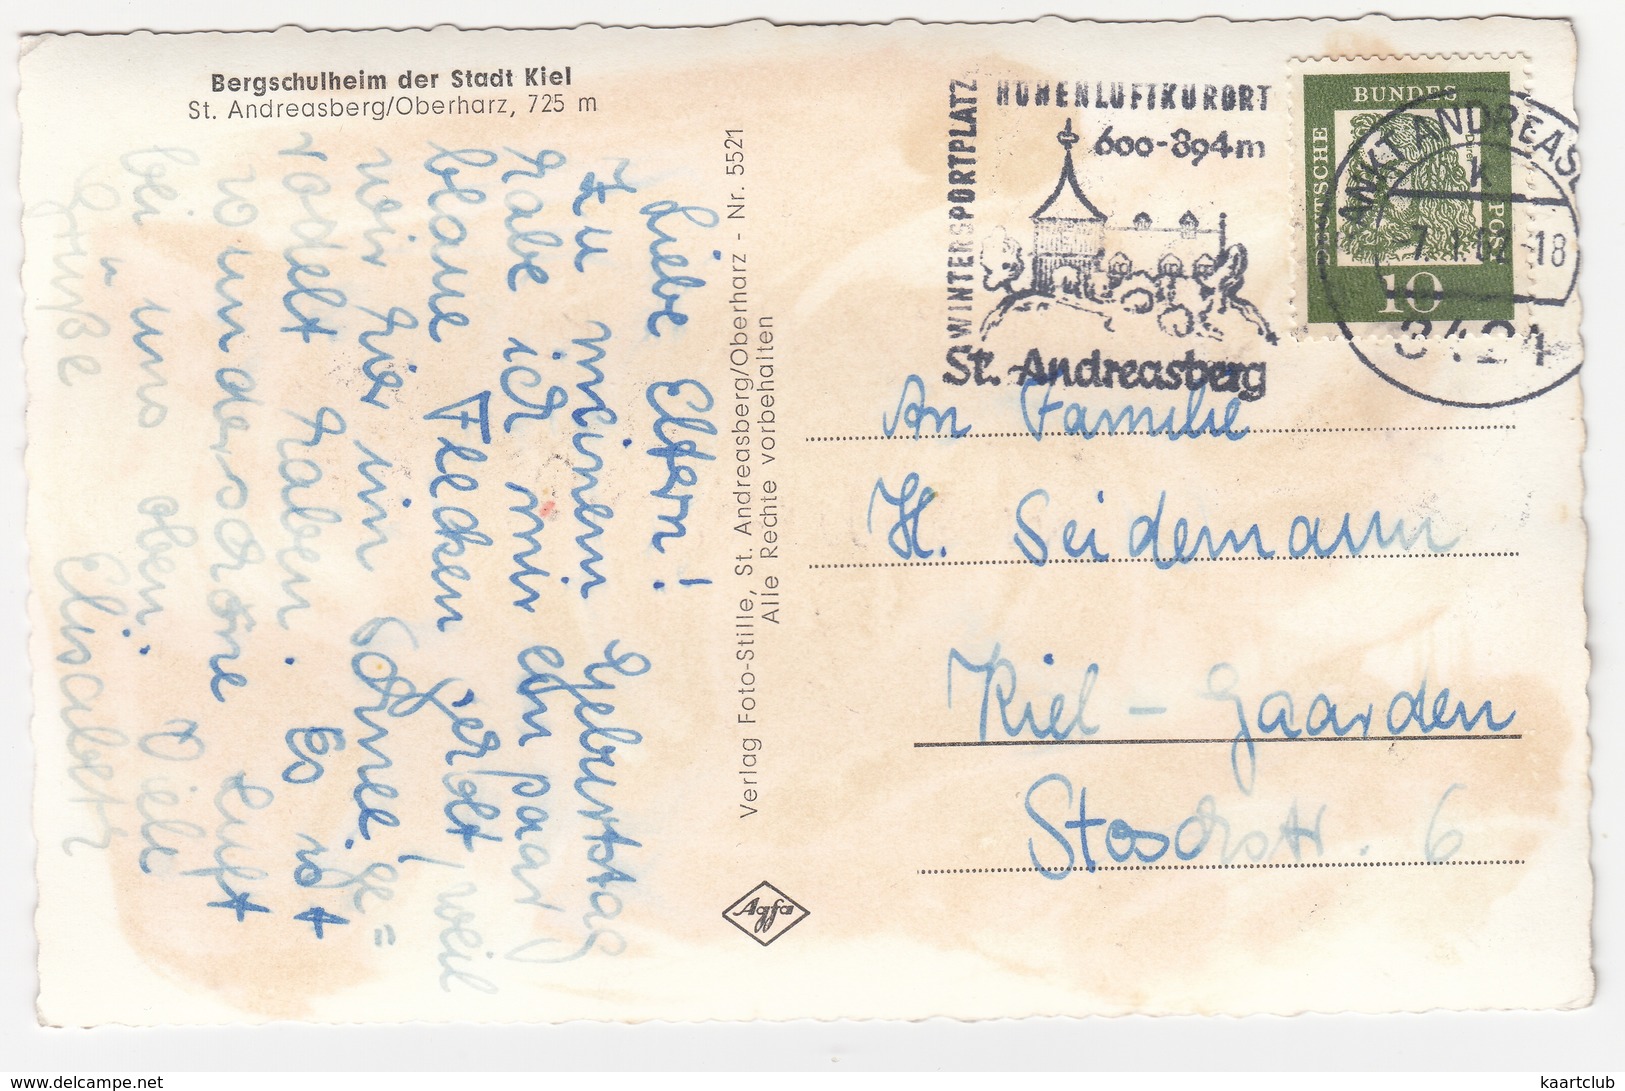 Bergschulheim der Stadt Kiel
St. Andreasberg/Oberharz, 725 m
Liebe Eltern!
Zu meinem Geburtstag
habe ich mir ein paar
blaue Flecken geholt, weil
wir hier im Schnee ge=
rodelt haben. Es ist
wunderschöne Luft
bei uns oben. Viele
Grüße Elisabeth
Verlag Foto-Stille, St. Andreasberg/Oberharz - Nr. 5521
Alle Rechte vorbehalten
Agfa
WINTERSPORTPLATZ
HÖHENLUFTKURORT
600-894m
St. Andreasberg
DEUTSCHE
BUNDES
POST
Dürer
10
SANKT ANDREASB
k
18
An Familie
H. Seidemann
Kiel - Gaarden
Stoschstr. 6
kaartclub
www.delcampe.net